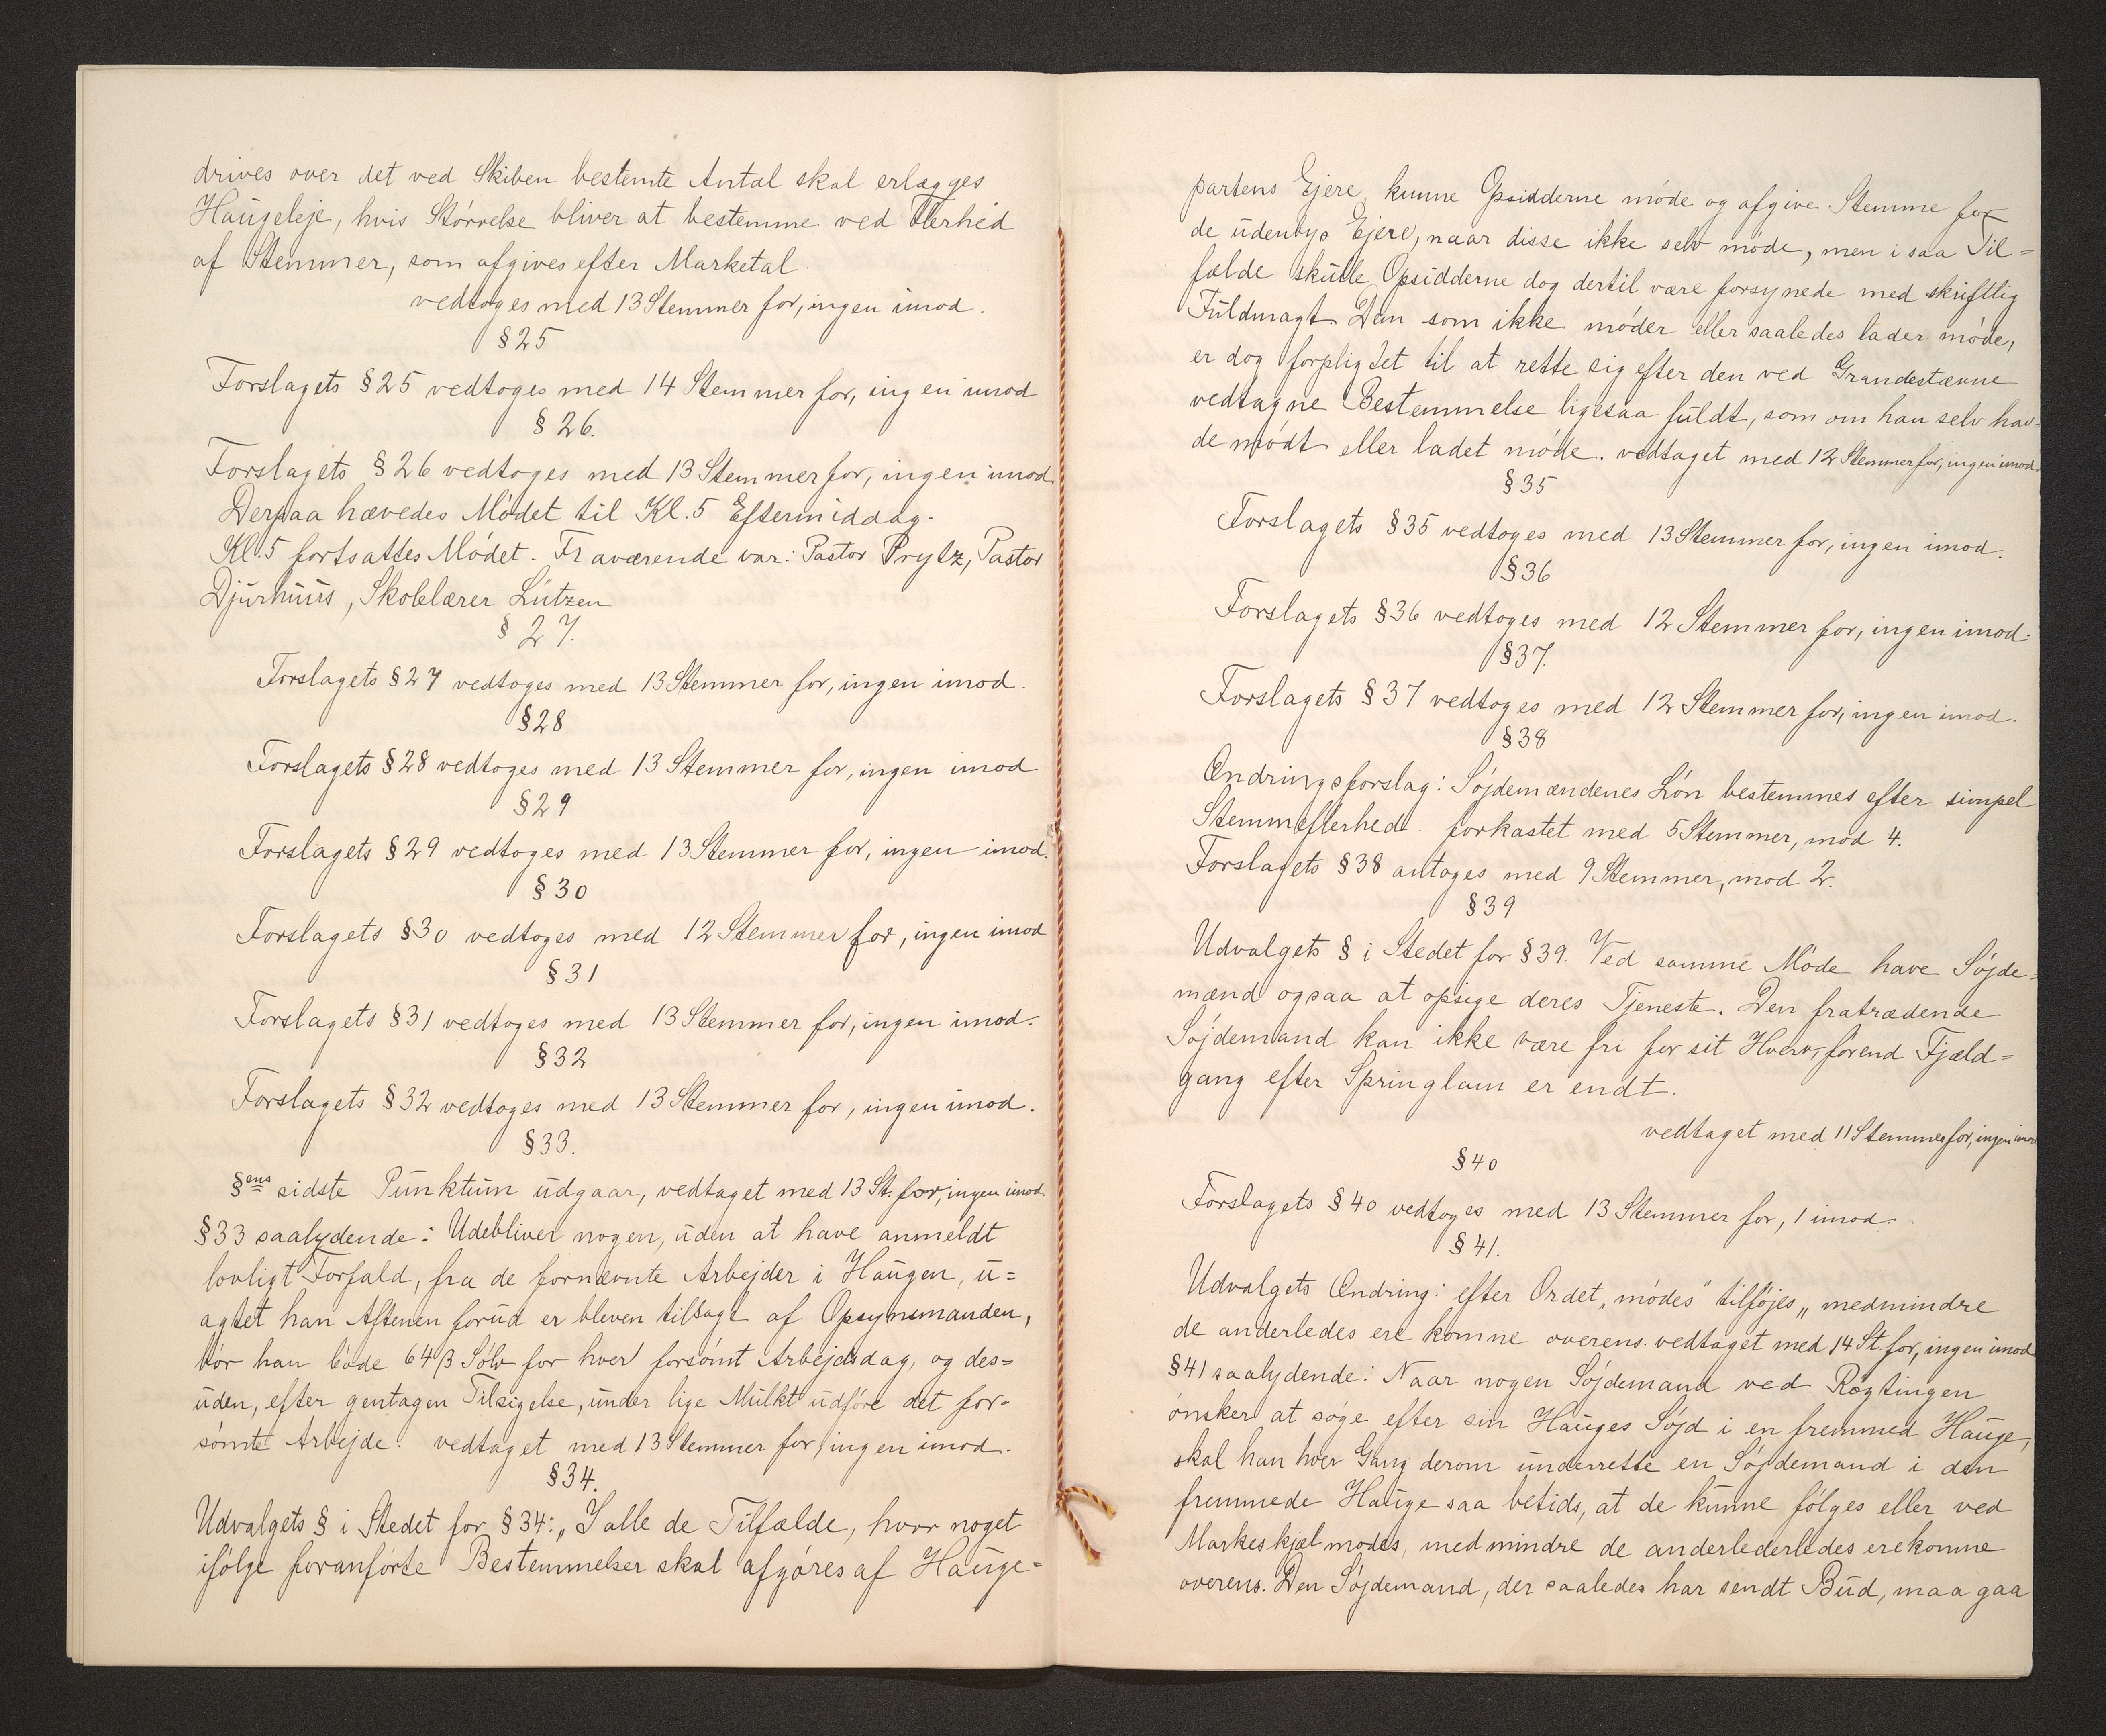 drives over det ved Skiben bestemte Antal skal erlægges
Haugeleje, hvis Størrelse bliver at bestemme ved Flerhed
af Stemmer, som afgives efter Marketal.
vedtoges med 13 Stemmer for, ingen imod.
§ 25
Forslagets § 25 vedtoges med 14 Stemmer for, ingen imod
§ 26.
Forslagets § 26 vedtoges med 13 Stemmer for, ingen imod.
Derpaa hævedes Mødet til Kl. 5 Eftermiddag.
Kl. 5 fortsattes Mødet. Fraværende var: Pastor Prytz, Pastor
Djurhuus, Skolelærer Lützen
§ 27.
Forslagets § 27 vedtoges med 13 Stemmer for, ingen imod.
§ 28
Forslagets § 28 vedtoges med 13 Stemmer for, ingen imod
§ 29
Forslagets § 29 vedtoges med 13 Stemmer for, ingen imod.
§ 30
Forslagets § 30 vedtoges med 12 Stemmer for, ingen imod
§ 31
Forslagets § 31 vedtoges med 13 Stemmer for, ingen imod.
§ 32
Forslagets § 32 vedtoges med 13 Stemmer for, ingen imod.
§ 33.
§ens sidste Punktum udgaar, vedtaget med 13 St. for, ingen imod.
§ 33 saalydende: Udebliver nogen, uden at have anmeldt
lovligt Forfald, fra de fornævnte Arbejder i Haugen, u=
agtet han Aftenen forud er bleven tilsagt af Opsynsmanden,
bør han bøde 64 β Sølv for hver forsømt Arbejdsdag, og des=
uden, efter gentagen Tilsigelse, under lige Mulkt udføre det for=
sømte Arbejde. vedtaget med 13 Stemmer for, ingen imod.
§ 34.
Udvalgets § i Stedet for § 34: „I alle de Tilfælde, hvor noget
ifølge foranførte Bestemmelser skal afgøres af Hauge=
partens Ejere, kunne Opsidderne møde og afgive Stemme for
de udenbys Ejere, naar disse ikke selv møde, men i saa Til=
fælde skulle Opsidderne dog dertil være forsynede med skriftlig
Fuldmagt. Den som ikke møder eller saaledes lader møde,
er dog forpligtet til at rette sig efter den ved Grandestævne
vedtagne Bestemmelse ligesaa fuldt, som om han selv hav=
de mødt eller ladet møde. vedtaget med 12 Stemmer for, ingen imod.
§ 35
Forslagets § 35 vedtoges med 13 Stemmer for, ingen imod.
§ 36
Forslagets § 36 vedtoges med 12 Stemmer for, ingen imod.
§ 37.
Forslagets § 37 vedtoges med 12 Stemmer for, ingen imod.
§ 38
Ændringsforslag: Søjdemændenes Løn bestemmes efter simpel
Stemmeflerhed. forkastet med 5 Stemmer, mod 4.
Forslagets § 38 antoges med 9 Stemmer, mod 2.
§ 39
Udvalgets § i Stedet for § 39. Ved samme Møde have Søjde=
mænd ogsaa at opsige deres Tjeneste. Den fratrædende
Søjdemand kan ikke være fri for sit Hverv, førend Fjæld=
gang efter Springlam er endt.
vedtaget med 11 Stemmer for, ingen imod
§ 40
Forslagets § 40 vedtoges med 13 Stemmer for, 1 imod.
§ 41.
Udvalgets Ændring: efter Ordet „mødes" tilføjes „ medmindre
de anderledes ere komne overens. vedtaget med 14 St. for, ingen imod
§ 41 saalydende: Naar nogen Søjdemand ved Røgtingen
ønsker at søge efter sin Hauges Søjd i en fremmed Hauge,
skal han hver Gang derom underrette en Søjdemand i den
fremmede Hauge saa betids, at de kunne følges eller ved
Markeskjæl mødes, medmindre de anderlederledes ere komne
overens. Den Søjdemand, der saaledes har sendt Bud, maa gaa